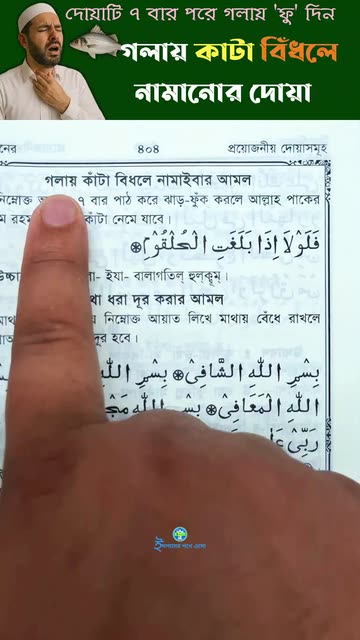 দোয়াটি ৭ বার পরে গলায় 'ফু' দিন
গলায় কাটা বিঁধলে
নামানোর দোয়া
৪০৪ প্রয়োজনীয় দোয়াসমূহ
গলায় কাঁটা বিধলে নামাইবার আমল
নিম্নোক্ত ৭ বার পাঠ করে ঝাড়-ফুঁক করলে আল্লাহ পাকের
কাঁটা নেমে যাবে।
فَلَوْلَا اِذَا بَلَغَتِ الْحُلْقُوْمَ
লা- ইযা- বালাগতিল্ হুল্‌কূম্।
ধরা দূর করার আমল
নিম্নোক্ত আয়াত লিখে মাথায় বেঁধে রাখলে
দূর হবে।
بِسْمِ اللّٰهِ الشَّافِىْ بِسْمِ اللّٰهِ
اللّٰهِ الْمَعَافِىْ بِسْمِ اللّٰهِ
رَبِّىْ
ইসলামের পথে চলো